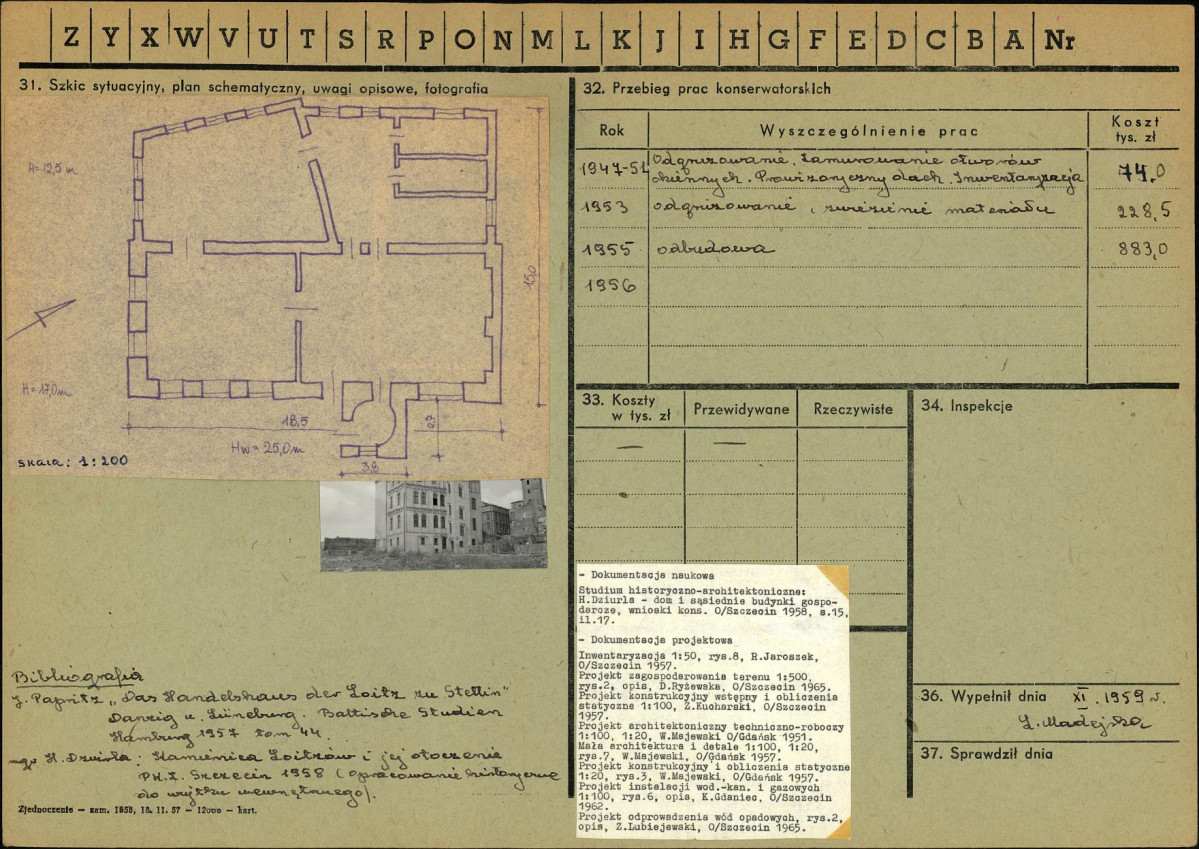 Z Y X W V U T S R P O N M L K J I H G F E D C B A Nr
31. Szkic sytuacyjny, plan schematyczny, uwagi opisowe, fotografia
H=12,5 m
15,0
H=17,0 m
18,5
2,7
Hw = 25,0 m
3,8
skala: 1:200
Bibliografia
J. Papritz „Das Handelshaus der Loitz zu Stettin"
Danzig u. Lüneburg. Baltische Studien
Hamburg 1957 tom 44.
H. Dziurla: Kamienica Loitzów i jej otoczenie
PKZ. Szczecin 1958 (opracowanie historyczne
do użytku wewnętrznego).
Zjednoczenie – zam. 1958, 18. 11. 57 – 12000 – kart.
32. Przebieg prac konserwatorskich
Rok Wyszczególnienie prac Koszt tys. zł
1947-51 Odgruzowanie. Zamurowanie otworów
okiennych. Prowizoryczny dach. Inwentaryzacja 74,0
1953 odgruzowanie, zwiezienie materiału 228,5
1955 odbudowa 883,0
1956
33. Koszty w tys. zł Przewidywane Rzeczywiste
34. Inspekcje
– Dokumentacja naukowa
Studium historyczno-architektoniczne:
H.Dziurla - dom i sąsiednie budynki gospo-
darcze, wnioski kons. O/Szczecin 1958, s.15,
il.17.
– Dokumentacja projektowa
Inwentaryzacja 1:50, rys.8, R.Jaroszek,
O/Szczecin 1957.
Projekt zagospodarowania terenu 1:500,
rys.2, opis, D.Ryżewska, O/Szczecin 1965.
Projekt konstrukcyjny wstępny i obliczenia
statyczne 1:100, Z.Kucharski, O/Szczecin
1957.
Projekt architektoniczny techniczno-roboczy
1:100, 1:20, W.Majewski O/Gdańsk 1951.
Mała architektura i detale 1:100, 1:20,
rys.7, W.Majewski, O/Gdańsk 1957.
Projekt konstrukcyjny i obliczenia statyczne
1:20, rys.3, W.Majewski, O/Gdańsk 1957.
Projekt instalacji wod.-kan. i gazowych
1:100, rys.6, opis, K.Gdaniec, O/Szczecin
1962.
Projekt odprowadzenia wód opadowych, rys.2,
opis, Z.Lubiejewski, O/Szczecin 1965.
36. Wypełnił dnia XI. 1959 r.
Ł. Madejska
37. Sprawdził dnia